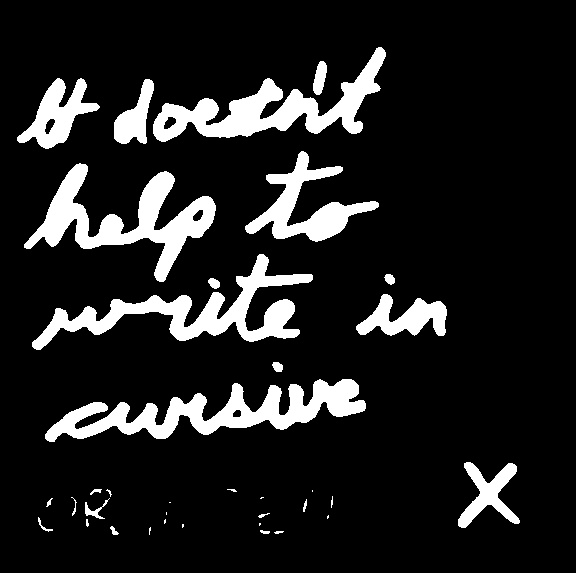 It doesn't
help to
write in
cursive
OR X